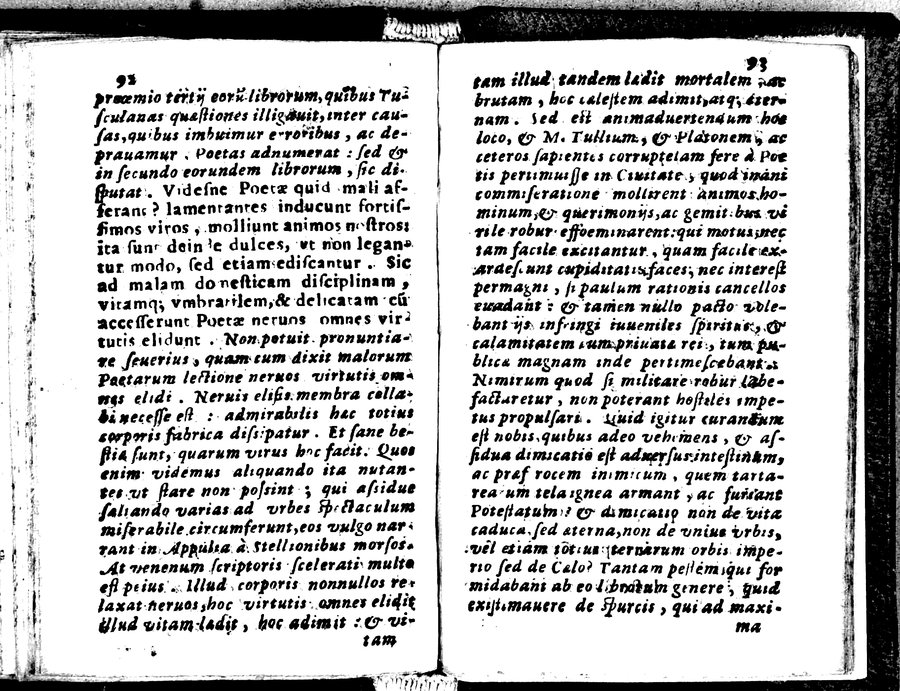 92
prœmio tertij eorū librorum, quibus Tu-
sculanas quæstiones illigauit, inter cau-
sas, quibus imbuimur erroribus, ac de-
prauamur. Poetas adnumerat: sed &
in secundo eorundem librorum, sic di-
sputat. Videsne Poetæ quid mali af-
ferant? lamentantes inducunt fortis-
simos viros, molliunt animos nostros:
ita sunt deinde dulces, vt non legan-
tur modo, sed etiam ediscantur. Sic
ad malam domesticam disciplinam,
vitamq; vmbratilem, & delicatam cū
accesserunt Poetæ neruos omnes vir-
tutis elidunt. Non potuit pronuntia-
re seuerius, quam cum dixit malorum
Poetarum lectione neruos virtutis om-
nes elidi. Neruis elisis membra colla-
bi necesse est: admirabilis hæc totius
corporis fabrica dissipatur. Et sane be-
stiæ sunt, quarum virus hoc facit. Quos
enim videmus aliquando ita nutan-
tes vt stare non possint; qui assidue
saltando varias ad vrbes spectaculum
miserabile circumferunt, eos vulgo nar-
rant in Appulia à Stellionibus morsos.
At venenum scriptoris scelerati multo
est peius. Illud corporis nonnullos re-
laxat neruos, hoc virtutis omnes elidit
illud vitam lædit, hoc adimit: & vi-
tam
93
tam illud tandem lædit mortalem, ac
brutam, hoc cælestem adimit, atq; æter-
nam. Sed est animaduertendum hoc
loco, & M. Tullium, & Platonem, ac
ceteros sapientes corruptelam fere à Poe
tis pertimuisse in Ciuitate, quod inani
commiseratione mollirent animos ho-
minum, & querimonijs, ac gemitibus vi
rile robur effœminarent: qui motus, nec
tam facile excitantur, quam facile ex-
ardescunt cupiditatis faces, nec interest
permagni, si paulum rationis cancellos
euadant: & tamen nullo pacto vole-
bant ijs infringi iuueniles spiritus, &
calamitatem cum priuatæ rei, tum pu-
blicæ magnam inde pertimescebant.
Nimirum quod si militare robur labe-
factaretur, non poterant hostiles impe-
tus propulsari. Quid igitur curandum
est nobis, quibus adeo vehemens, & as-
sidua dimicatio est aduersus intestinum,
ac præferocem inimicum, quem tarta-
rearum tela ignea armant, ac furiant
Potestatum? & dimicatio non de vita
caduca, sed æterna, non de vnius vrbis,
vel etiam totius terrarum orbis impe-
rio sed de Cælo? Tantam pestem, qui for
midabant ab eo librorum genere, quid
existimauere de spurcis, qui ad maxi-
ma